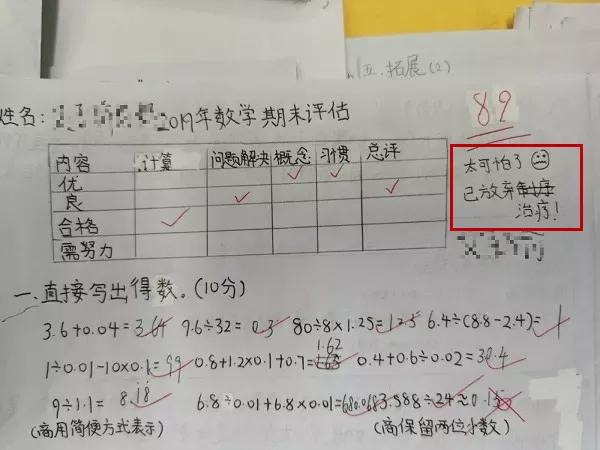 五.拓展(2)
姓名:
2019年数学期末评估
89
内容 计算 问题解决 概念 习惯 总评
优
良
合格
需努力
太可怕了
已放弃
治疗!
一.直接写出得数。(10分)
3.6+0.04=3.64 9.6÷32=0.3 80÷8×1.25=12.5 6.4÷(8.8-2.4)=1
1.62
1÷0.01-10×0.1=99 0.8+1.2×0.1+0.7= 0.4+0.6÷0.02=30.4
9÷1.1=8.18 6.8÷0.01+6.8×0.01=680.068 3.588÷24≈0.15
(商用简便方式表示) (商保留两位小数)